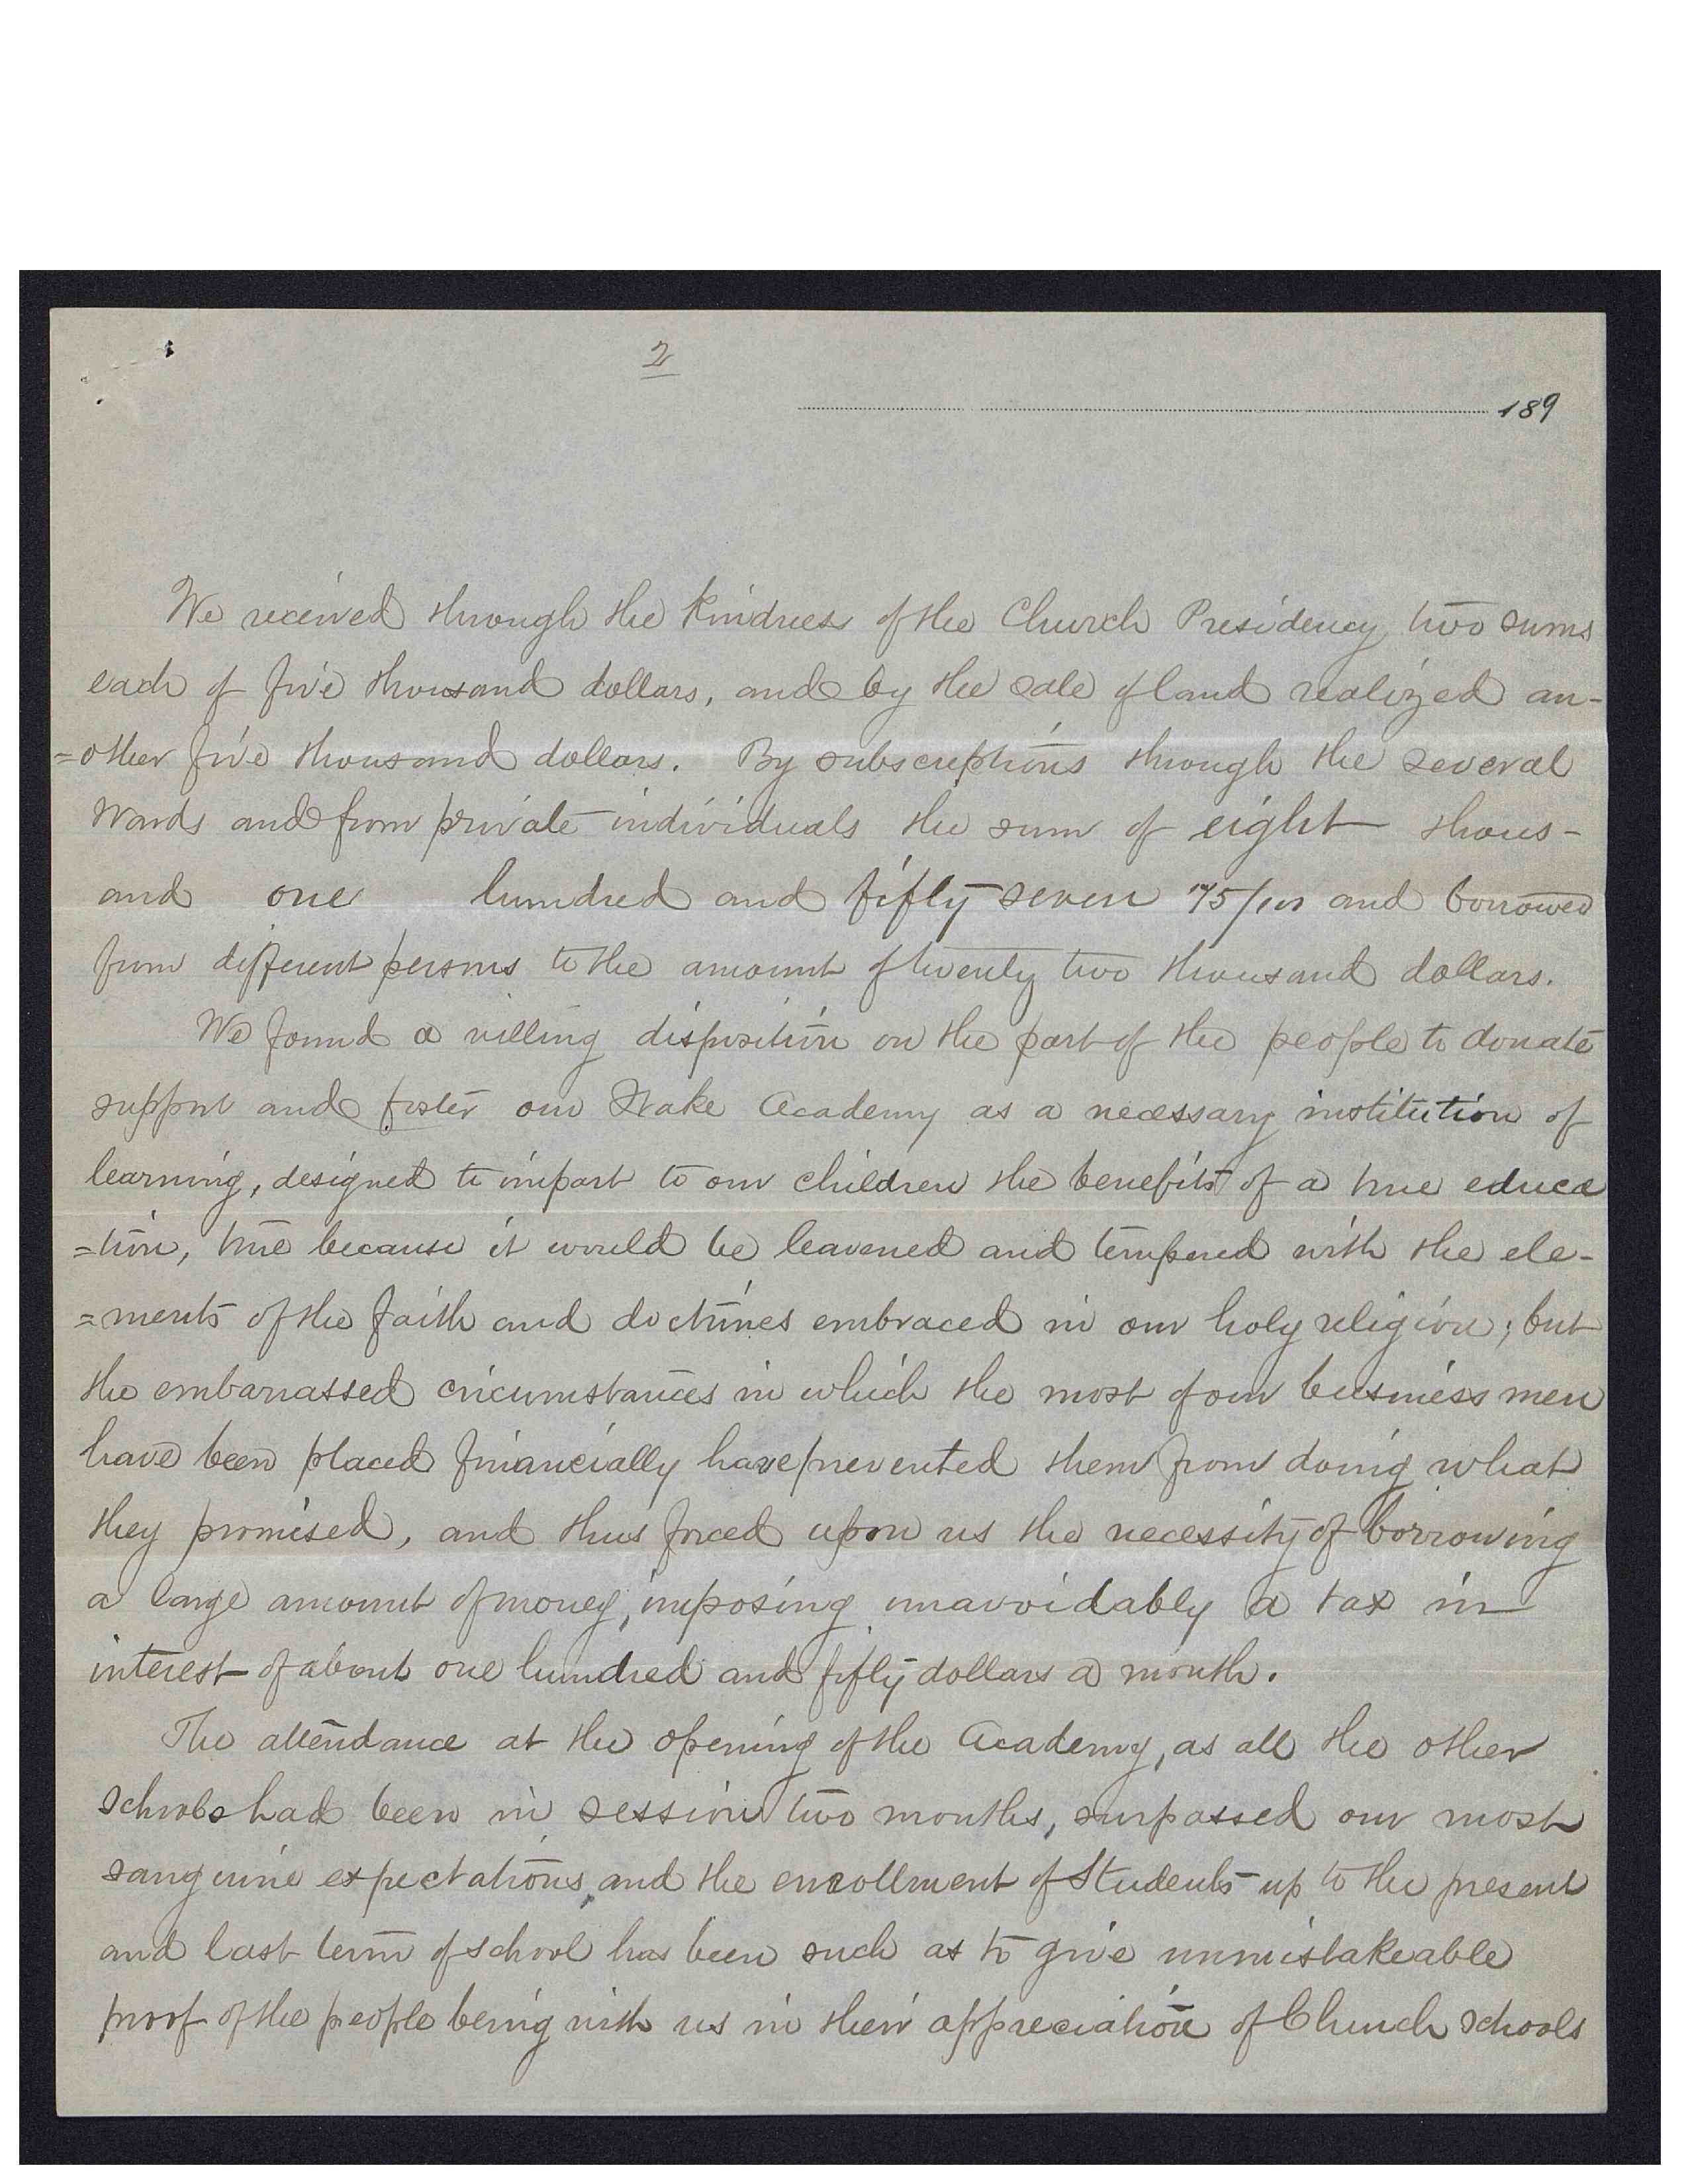 2
189
We received through the kindness of the Church Presidency two sums
each of five thousand dollars, and by the sale of land realized an-
=other five thousand dollars. By subscriptions through the several
Wards and from private individuals the sum of eight thous-
and one hundred and fifty seven 75/100 and borrowed
from different persons to the amount of twenty two thousand dollars.
We found a willing disposition on the part of the people to donate
support and foster our Stake Academy as a necessary institution of
learning, designed to impart to our children the benefits of a true educa
=tion, true because it would be leavened and tempered with the ele-
=ments of the faith and doctrines embraced in our holy religion; but
the embarrassed circumstances in which the most of our business men
have been placed financially have prevented them from doing what
they promised, and thus forced upon us the necessity of borrowing
a large amount of money, imposing unavoidably a tax in
interest of about one hundred and fifty dollars a month.
The attendance at the opening of the Academy, as all the other
schools had been in session two months, surpassed our most
sanguine expectations, and the enrollment of Students up to the present
and last term of school has been such as to give unmistakeable
proof of the people being with us in their appreciation of Church schools